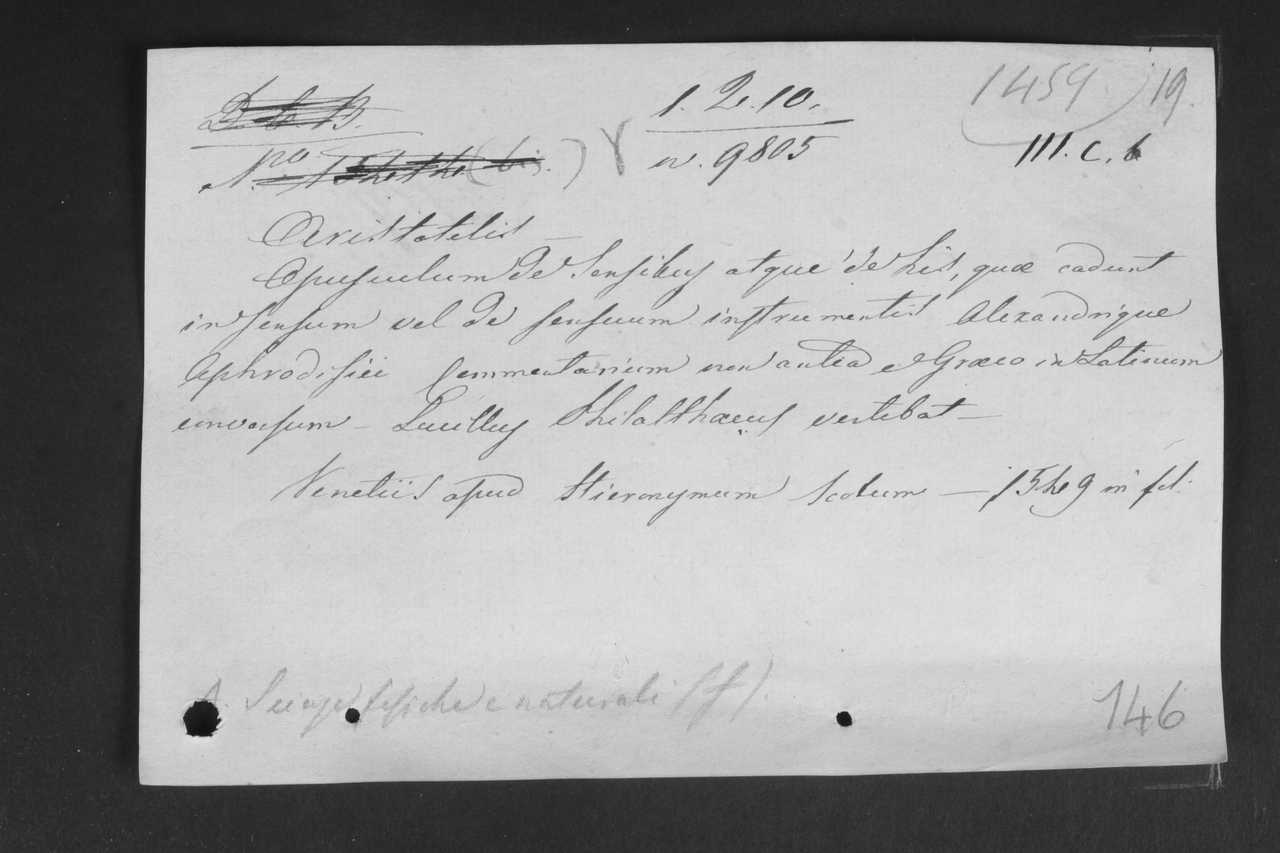 1. 2. 10.
1459 19.
n. 9805
III. C. 6
Aristotelis
Opusculum de Sensibus atque de his, quæ cadunt
in sensum vel de sensuum instrumentis Alexandrique
Aphrodisiei Commentarium non antea e Græco in Latinum
conversum - Lucillus Philalthæus vertebat -
Venetiis apud Hieronymum Scotum - 1549 in fol.
A. Scienze fisiche e naturali (f).
146